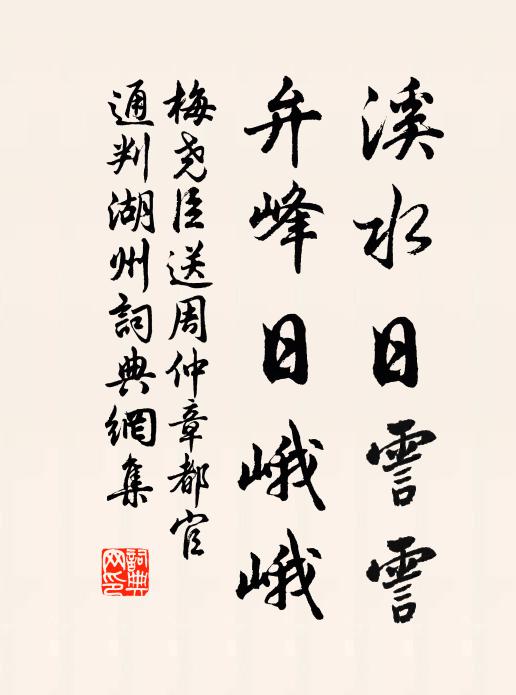 溪水日霅霅
弁峰日峨峨
梅尧臣送周仲章都官
通判湖州詞典網集
詞典网印